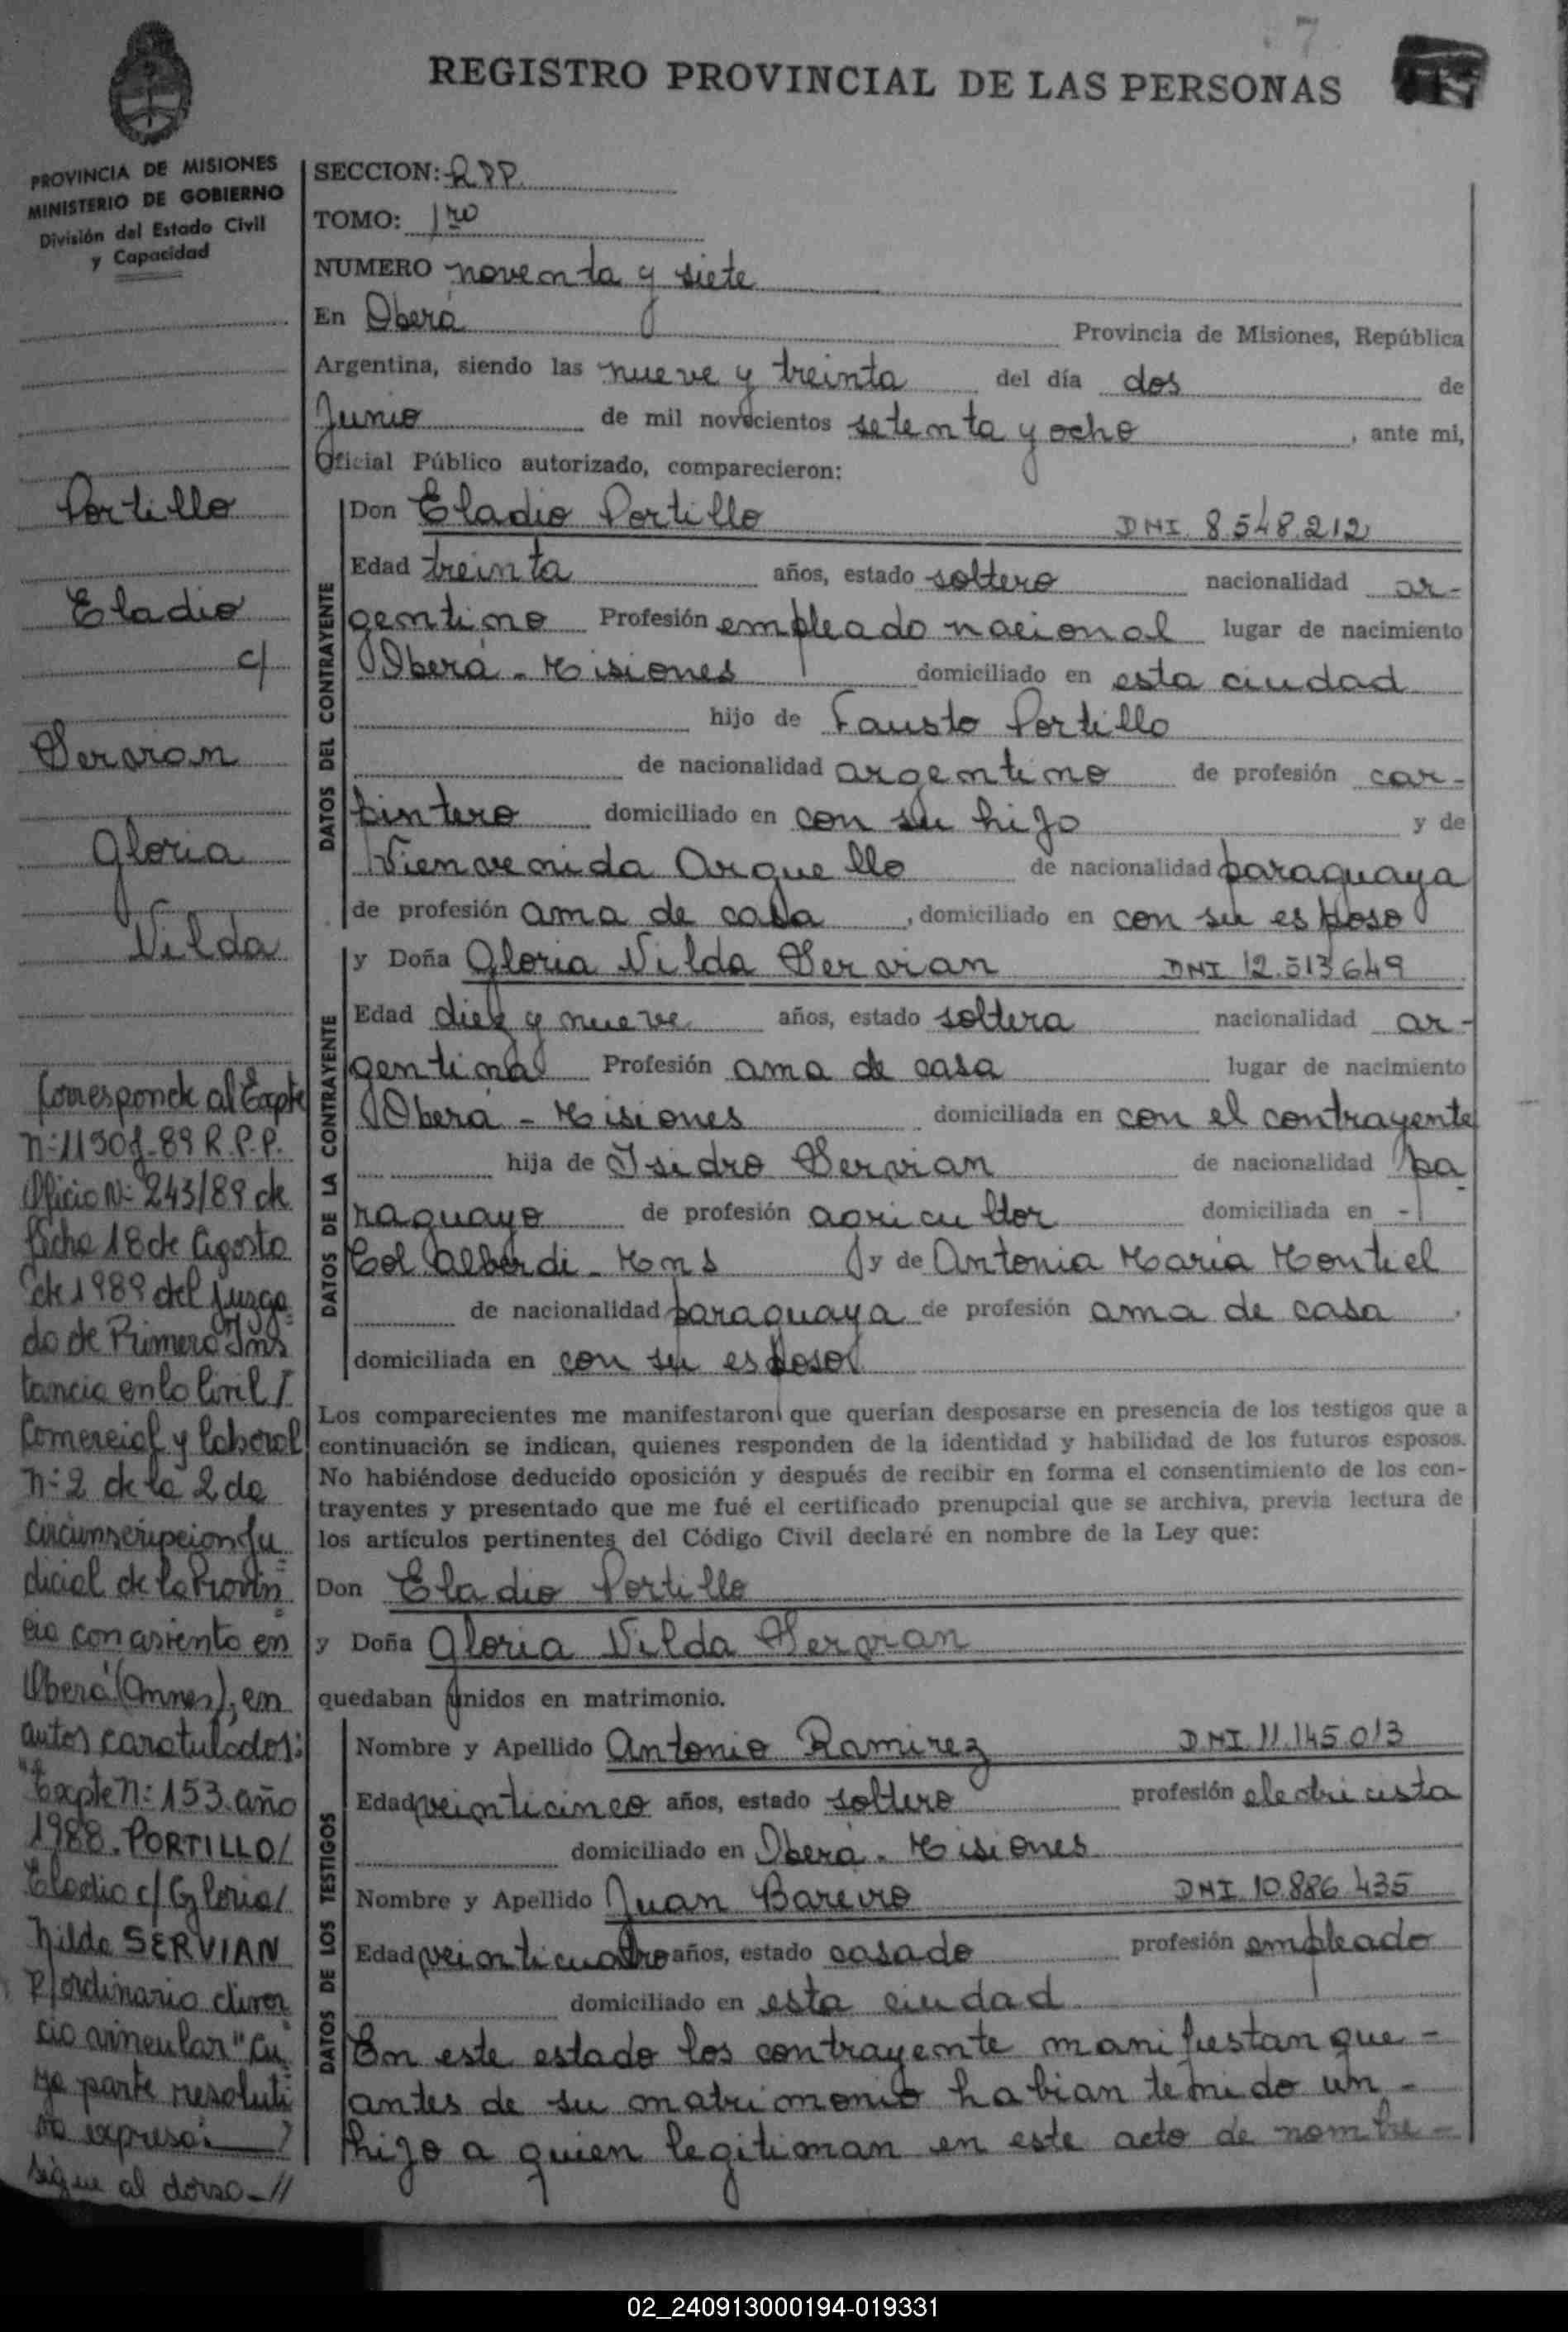 REGISTRO PROVINCIAL DE LAS PERSONAS
PROVINCIA DE MISIONES
MINISTERIO DE GOBIERNO
División del Estado Civil
y Capacidad
SECCION: RPP.
TOMO: 1ro
NUMERO noventa y siete
En Oberá Provincia de Misiones, República
Argentina, siendo las nueve y treinta del día dos de
Junio de mil novecientos setenta y ocho, ante mi,
Oficial Público autorizado, comparecieron:
DATOS DEL CONTRAYENTE
Don Eladio Portillo DNI 8.548.212
Edad treinta años, estado soltero nacionalidad ar-
gentino Profesión empleado nacional lugar de nacimiento
Oberá - Misiones domiciliado en esta ciudad
hijo de Fausto Portillo
de nacionalidad argentino de profesión car-
pintero domiciliado en con su hijo y de
Vienvenida Arguello de nacionalidad paraguaya
de profesión ama de casa, domiciliado en con su esposo
DATOS DE LA CONTRAYENTE
y Doña Gloria Nilda Servian DNI 12.513.649
Edad diez y nueve años, estado soltera nacionalidad ar-
gentina Profesión ama de casa lugar de nacimiento
Oberá - Misiones domiciliada en con el contrayente
hija de Isidro Servian de nacionalidad pa
raguayo de profesión agricultor domiciliada en -
Col Alberdi - Mns y de Antonia Maria Montiel
de nacionalidad paraguaya de profesión ama de casa.
domiciliada en con su esposo
Los comparecientes me manifestaron que querían desposarse en presencia de los testigos que a
continuación se indican, quienes responden de la identidad y habilidad de los futuros esposos.
No habiéndose deducido oposición y después de recibir en forma el consentimiento de los con-
trayentes y presentado que me fué el certificado prenupcial que se archiva, previa lectura de
los artículos pertinentes del Código Civil declaré en nombre de la Ley que:
Don Eladio Portillo
y Doña Gloria Nilda Servian
quedaban unidos en matrimonio.
DATOS DE LOS TESTIGOS
Nombre y Apellido Antonio Ramirez DNI 11.145.013
Edad veinticinco años, estado soltero profesión electricista
domiciliado en Oberá - Misiones
Nombre y Apellido Juan Bareiro DNI 10.886.435
Edad veinticuatro años, estado casado profesión empleado
domiciliado en esta ciudad
En este estado los contrayente manifiestan que -
antes de su matrimonio habian tenido un -
hijo a quien legitiman en este acto de nombre -
Portillo
Eladio
c/
Servian
Gloria
Nilda
Corresponde al Expte
Nº R.P.P.
Oficio Nº 243/89 de
fecha 18 de Agosto
de 1989 del juzga
do de Primera Ins
tancia en lo Civil
Comercial y laboral
Nº 2 de la 2da
circunscripcion Ju
dicial de la Provin
cia con asiento en
Oberá (Mnes), en
autos caratulados:
"Expte Nº 153 año
1988. PORTILLO/
Eladio c/ Gloria/
Nilda SERVIAN
P/ordinario divor
cio vincular" Cu
ya parte resoluti
va expresa:
sigue al dorso.-//
02_240913000194-019331